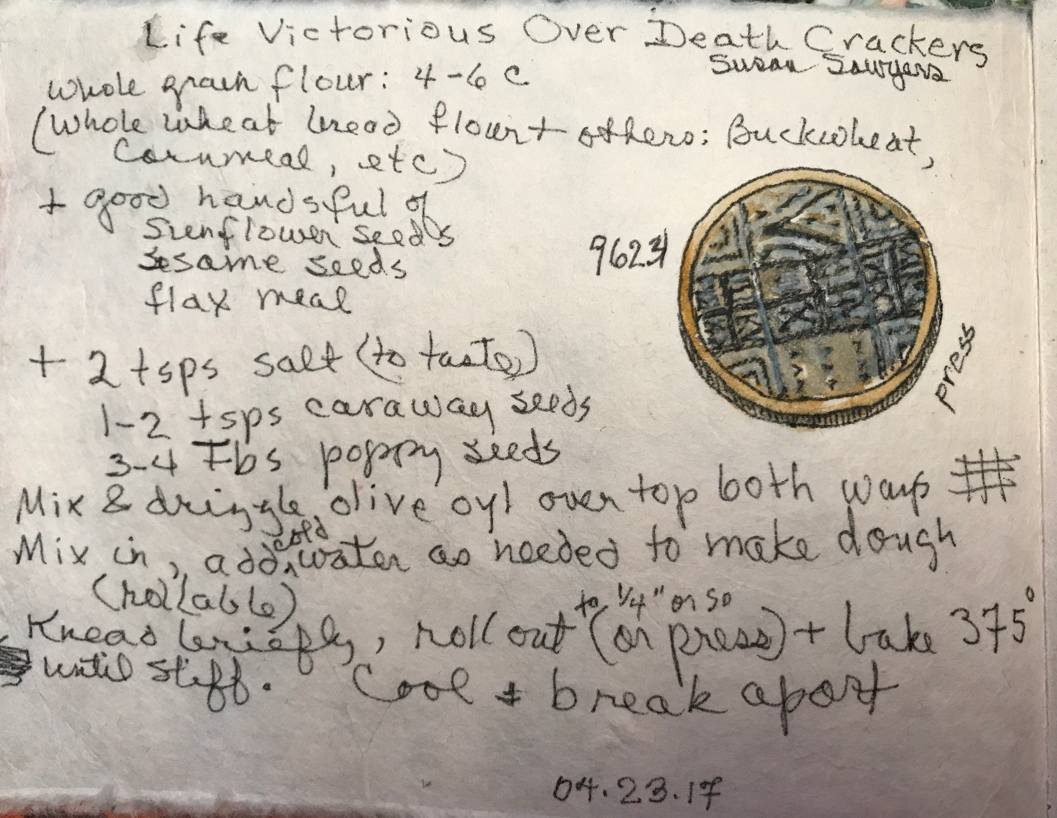 Life Victorious Over Death Crackers
Susan Sawyers
Whole grain flour: 4-6 c
(Whole wheat bread flour + others: Buckwheat,
Cornmeal, etc)
+ good handsful of
Sunflower seeds
sesame seeds
flax meal
9623
press
+ 2 tsps salt (to taste)
1-2 tsps caraway seeds
3-4 Tbs poppy seeds
Mix & drizzle olive oyl over top both ways #
Mix in, add cold water as needed to make dough
(rollable)
Knead briefly, roll out to 1/4" or so (or press) + bake 375°
until stiff. Cool & break apart
04.23.17